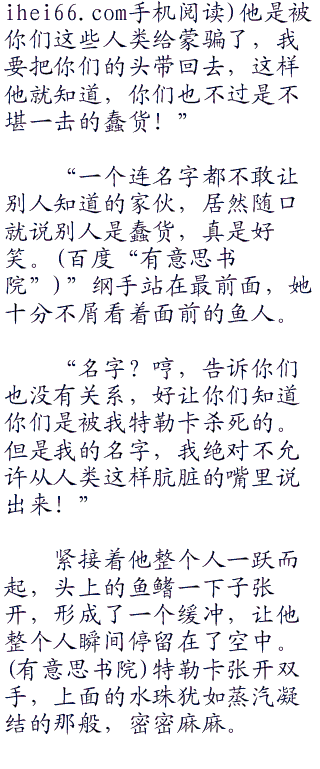 ihei66.com手机阅读)他是被
你们这些人类给蒙骗了，我
要把你们的头带回去，这样
他就知道，你们也不过是不
堪一击的蠢货！”
“一个连名字都不敢让
别人知道的家伙，居然随口
就说别人是蠢货，真是好
笑。(百度“有意思书
院”)”纲手站在最前面，她
十分不屑看着面前的鱼人。
“名字？哼，告诉你们
也没有关系，好让你们知道
你们是被我特勒卡杀死的。
但是我的名字，我绝对不允
许从人类这样肮脏的嘴里说
出来！”
紧接着他整个人一跃而
起，头上的鱼鳍一下子张
开，形成了一个缓冲，让他
整个人瞬间停留在了空中。
(有意思书院)特勒卡张开双
手，上面的水珠犹如蒸汽凝
结的那般，密密麻麻。